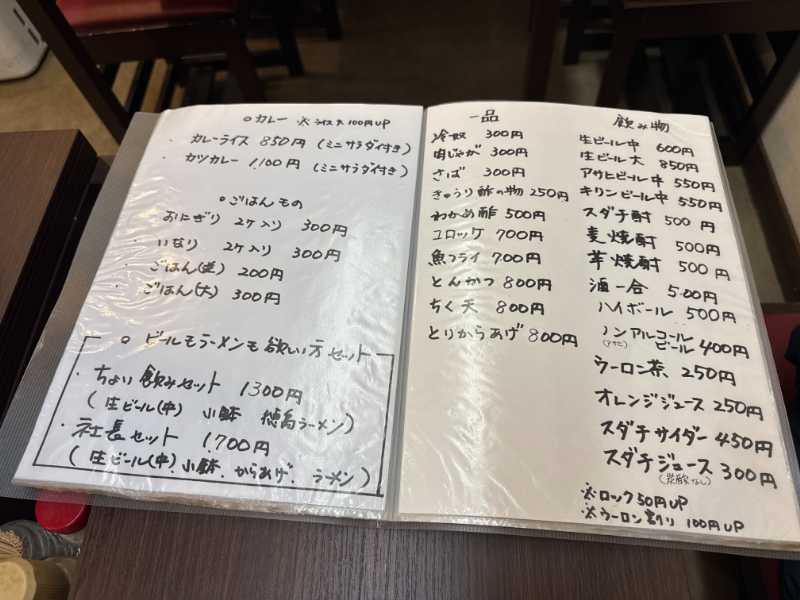 ○ カレー ※ ライス大 100円UP
・ カレーライス 850円 (ミニサラダ付き)
・ カツカレー 1,100円 (ミニサラダ付き)
○ごはんもの
・ おにぎり 2ヶ入り 300円
・ いなり 2ヶ入り 300円
・ ごはん(並) 200円
・ ごはん(大) 300円
○ ビールもラーメンも欲しい方セット
・ ちょい飲みセット 1300円
( 生ビール(中) 小鉢 徳島ラーメン)
・ 社長セット 1,700円
( 生ビール(中)、小鉢、からあげ、ラーメン)
一品
冷奴 300円
肉じゃが 300円
さば 300円
きゅうり酢の物 250円
わかめ酢 500円
コロッケ 700円
魚フライ 700円
とんかつ 800円
ちく天 800円
とりからあげ 800円
飲み物
生ビール中 600円
生ビール大 850円
アサヒビール中 550円
キリンビール中 550円
スダチ酎 500円
麦焼酎 500円
芋焼酎 500円
酒一合 500円
ハイボール 500円
ノンアルコール
ビール 400円
ウーロン茶 250円
オレンジジュース 250円
スダチサイダー 450円
スダチジュース 300円
(炭酸なし)
※ロック 50円UP
※ウーロン割り 100円UP